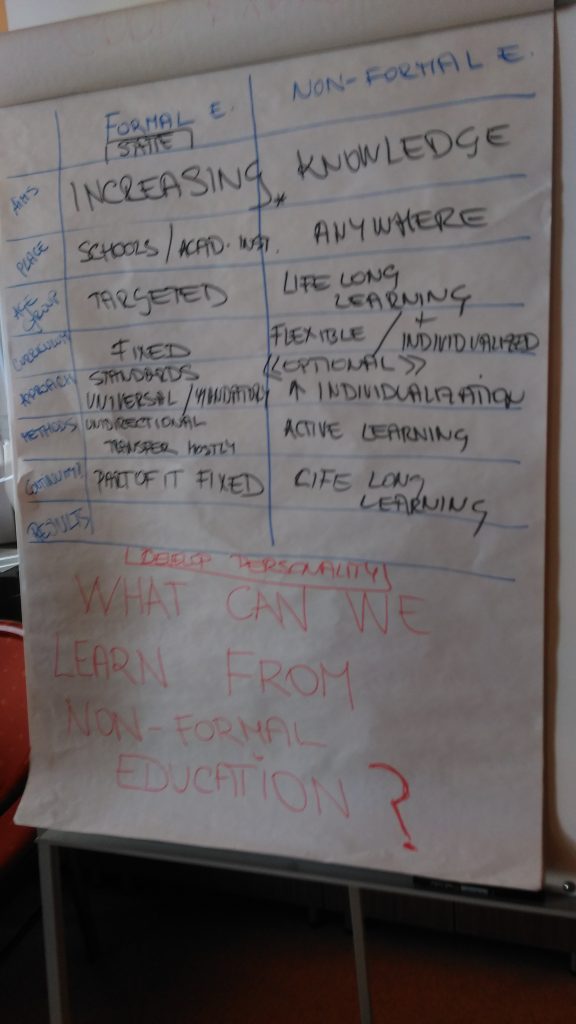 FORMAL E. NON-FORMAL E.
STATE
AIMS INCREASING * KNOWLEDGE
PLACE SCHOOLS / ACAD. INST. ANYWHERE
AGE GROUP TARGETED LIFE LONG LEARNING
CURRICULUM FIXED FLEXIBLE / + INDIVIDUALIZED
<<OPTIONAL>>
APPROACH STANDARDS
UNIVERSAL / MANDATORY ↑ INDIVIDUALIZATION
METHODS UNIDIRECTIONAL ACTIVE LEARNING
TRANSFER MOSTLY
CONTINUITY PART OF IT FIXED LIFE LONG LEARNING
RESULTS
PERSONALITY
WHAT CAN WE
LEARN FROM
NON-FORMAL
EDUCATION ?